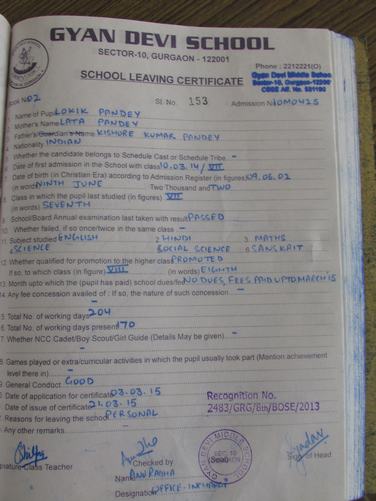 GYAN DEVI SCHOOL
SECTOR-10, GURGAON - 122001
Phone : 2212221(O)
SCHOOL LEAVING CERTIFICATE
Gyan Devi Middle School
Sector-10, Gurgaon-122001
CBSE Aff. No. 531192
Book No 02 Sl. No. 153 Admission No IOM0425
Name of Pupil LOKIK PANDEY
Mother's Name LATA PANDEY
Father's/Guardian's Name KISHORE KUMAR PANDEY
Nationality INDIAN
Whether the candidate belongs to Schedule Cast or Schedule Tribe. -
Date of first admission in the School with class 10.03.14/VII
Date of birth (in Christian Era) according to Admission Register (in figures) 09.06.02
(in words) NINTH JUNE Two Thousand and TWO
Class in which the pupil last studied (in figures) VII
(in words) SEVENTH
School/Board Annual examination last taken with result PASSED
10 Whether failed, if so once/twice in the same class -
11 Subject studied 1 ENGLISH 2 HINDI 3 MATHS
4 SCIENCE 5 SOCIAL SCIENCE 6 SANSKRIT
12 Whether qualified for promotion to the higher class PROMOTED
If so, to which class (in figure) VIII (in words) EIGHTH
13 Month upto which the (pupil has paid) school dues/fee NO DUES, FEES PAID UPTO MARCH'15
14 Any fee concession availed of : If so, the nature of such concession -
15 Total No. of working days 204
16 Total No. of working days present 170
17 Whether NCC Cadet/Boy Scout/Girl Guide (Details May be given) -
18 Games played or extra/curricular activities in which the pupil usually took part (Mention achievement
level there in) -
General Conduct GOOD
Date of application for certificate 03.03.15
Date of issue of certificate 21.03.15
Reasons for leaving the school PERSONAL
Any other remarks.
Recognition No.
2483/GRG/8th/BOSE/2013
Signature Class Teacher Checked by Sign. of Head
Name ANURADHA
Designation OFFICE-INCHARGE